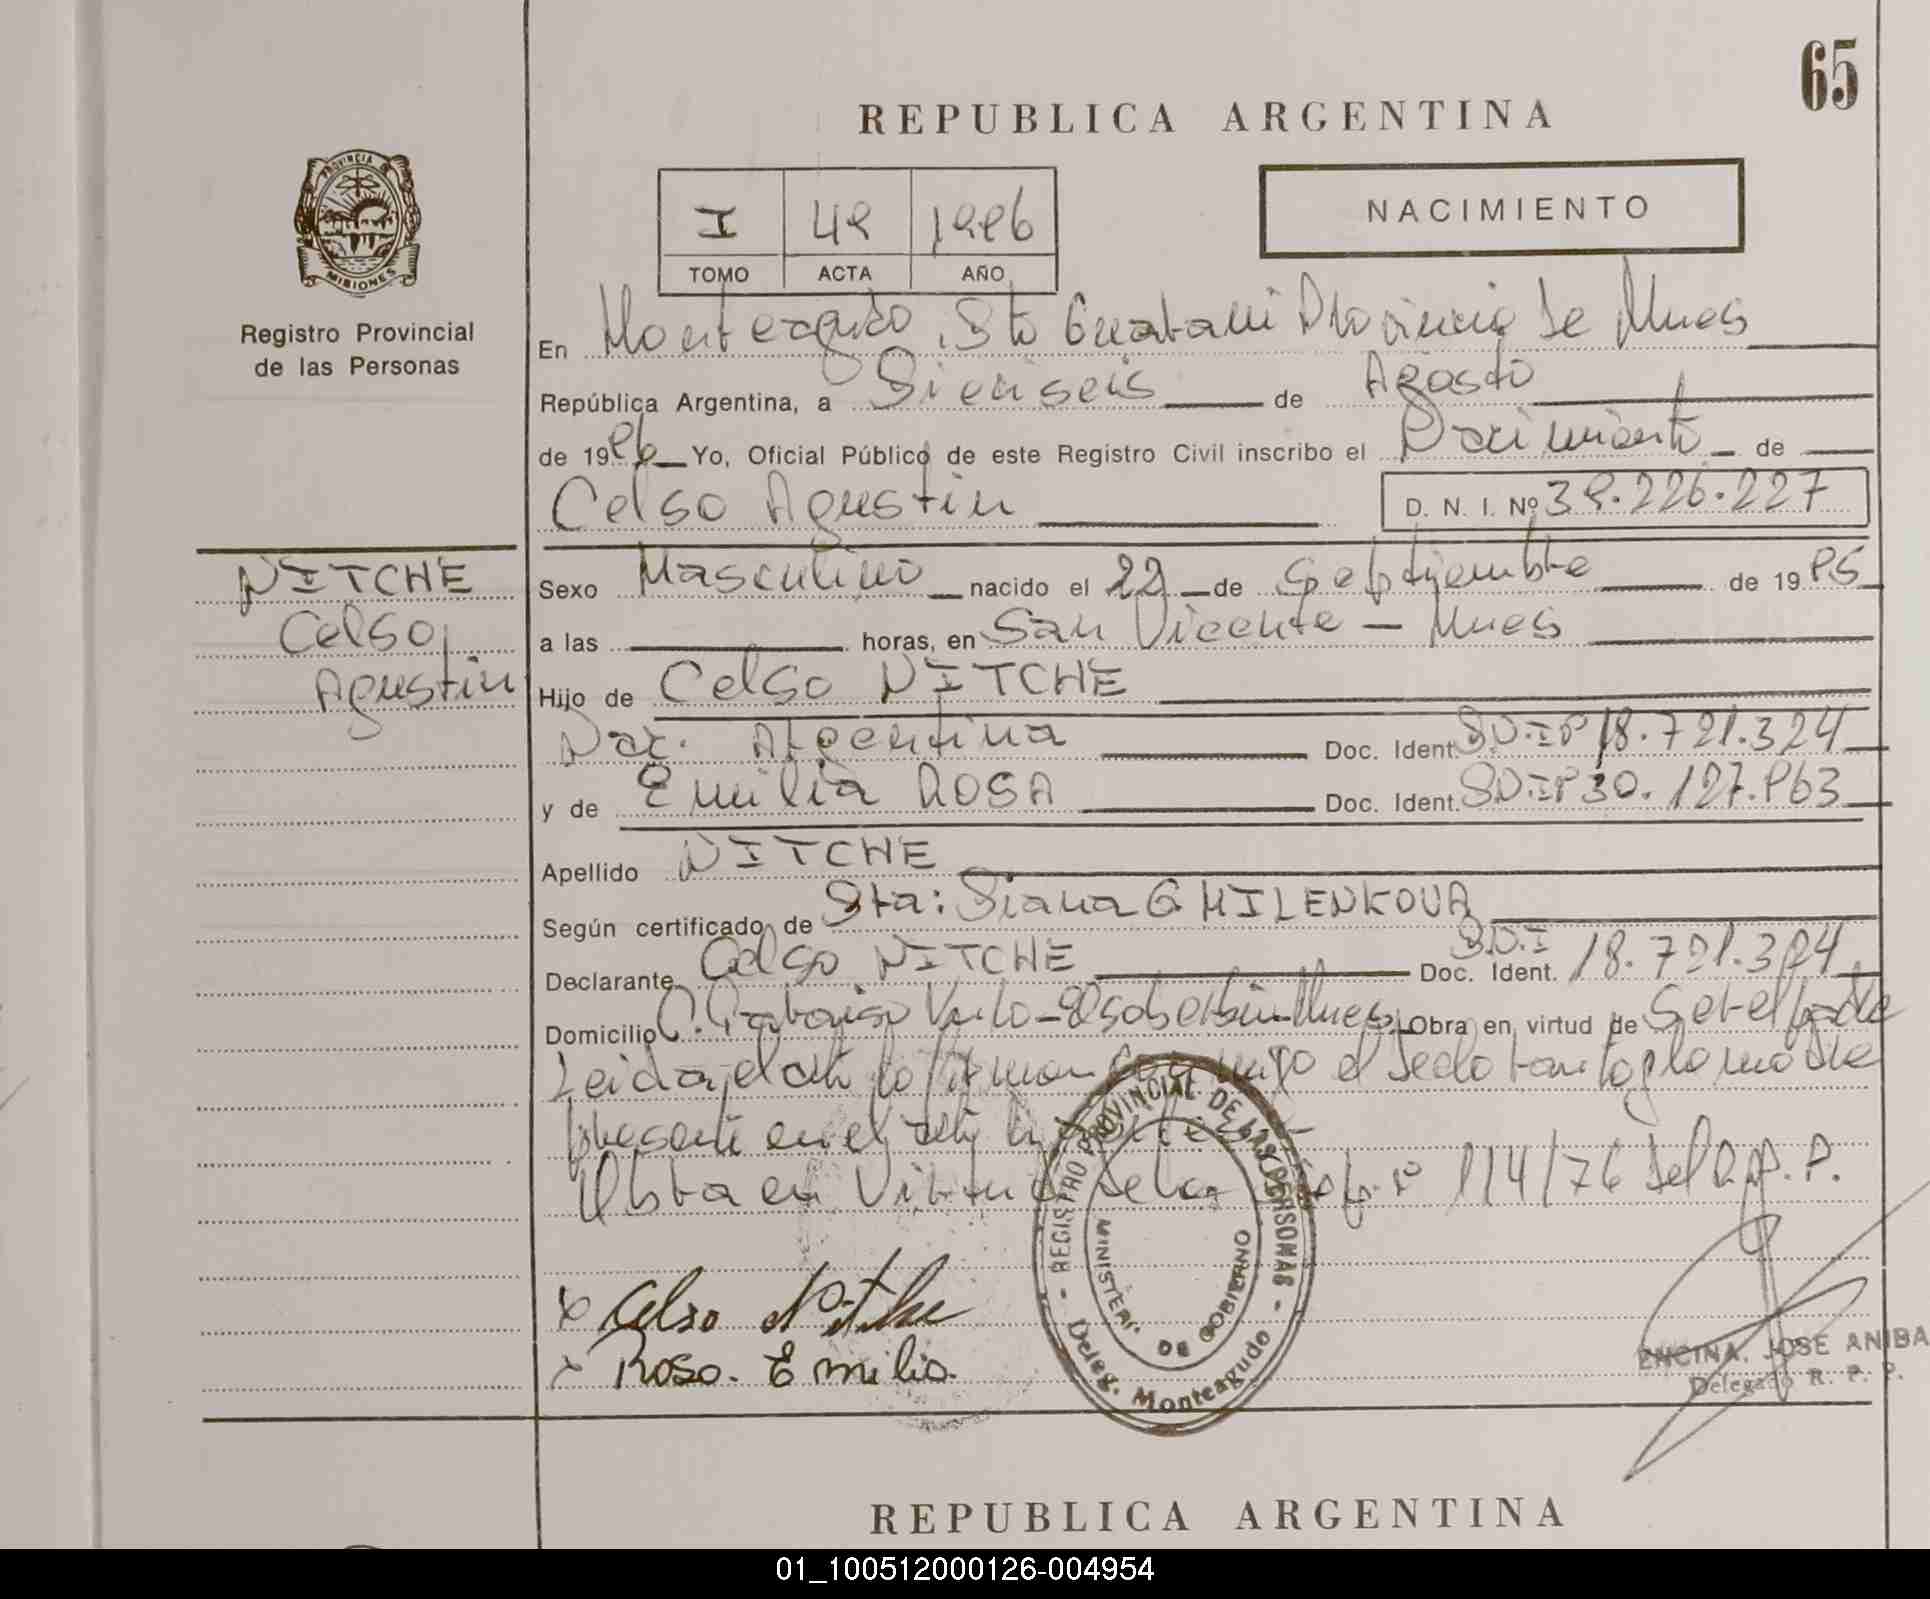 65
REPUBLICA ARGENTINA
PROVINCIA DE
MISIONES
Registro Provincial
de las Personas
I 48 1986
TOMO ACTA AÑO
NACIMIENTO
En Monteagudo, Dto Guaraní Provincia de Mnes
República Argentina, a Dieciseis de Agosto
de 1986 Yo, Oficial Público de este Registro Civil inscribo el Nacimiento de
Celso Agustin D. N. I. Nº 38.226.227
NITCHE
Celso
Agustin
Sexo Masculino nacido el 22 de Septiembre de 1985
a las horas, en San Vicente - Mnes
Hijo de Celso NITCHE
Nac. Argentina Doc. Ident. 18.721.324
y de Emilia ROSA Doc. Ident. 30.127.863
Apellido NITCHE
Según certificado de Sta: Diana G MILENKOVA
Declarante Celso NITCHE Doc. Ident. D.N.I 18.721.324
Domicilio C. Paraiso El Soberbio-Mnes Obra en virtud de Ser el padre
Leida el acta la firman conmigo el declarante y la madre
presente en el acto
Obra en Virtud de la 114/76 del R.P.P.
x Celso Nitche
x Rosa. Emilia.
REGISTRO PROVINCIAL DE LAS PERSONAS
MINISTERIO DE GOBIERNO
Deleg. Monteagudo
ENCINA, JOSE ANIBA
Delegado R. P. P.
REPUBLICA ARGENTINA
01_100512000126-004954